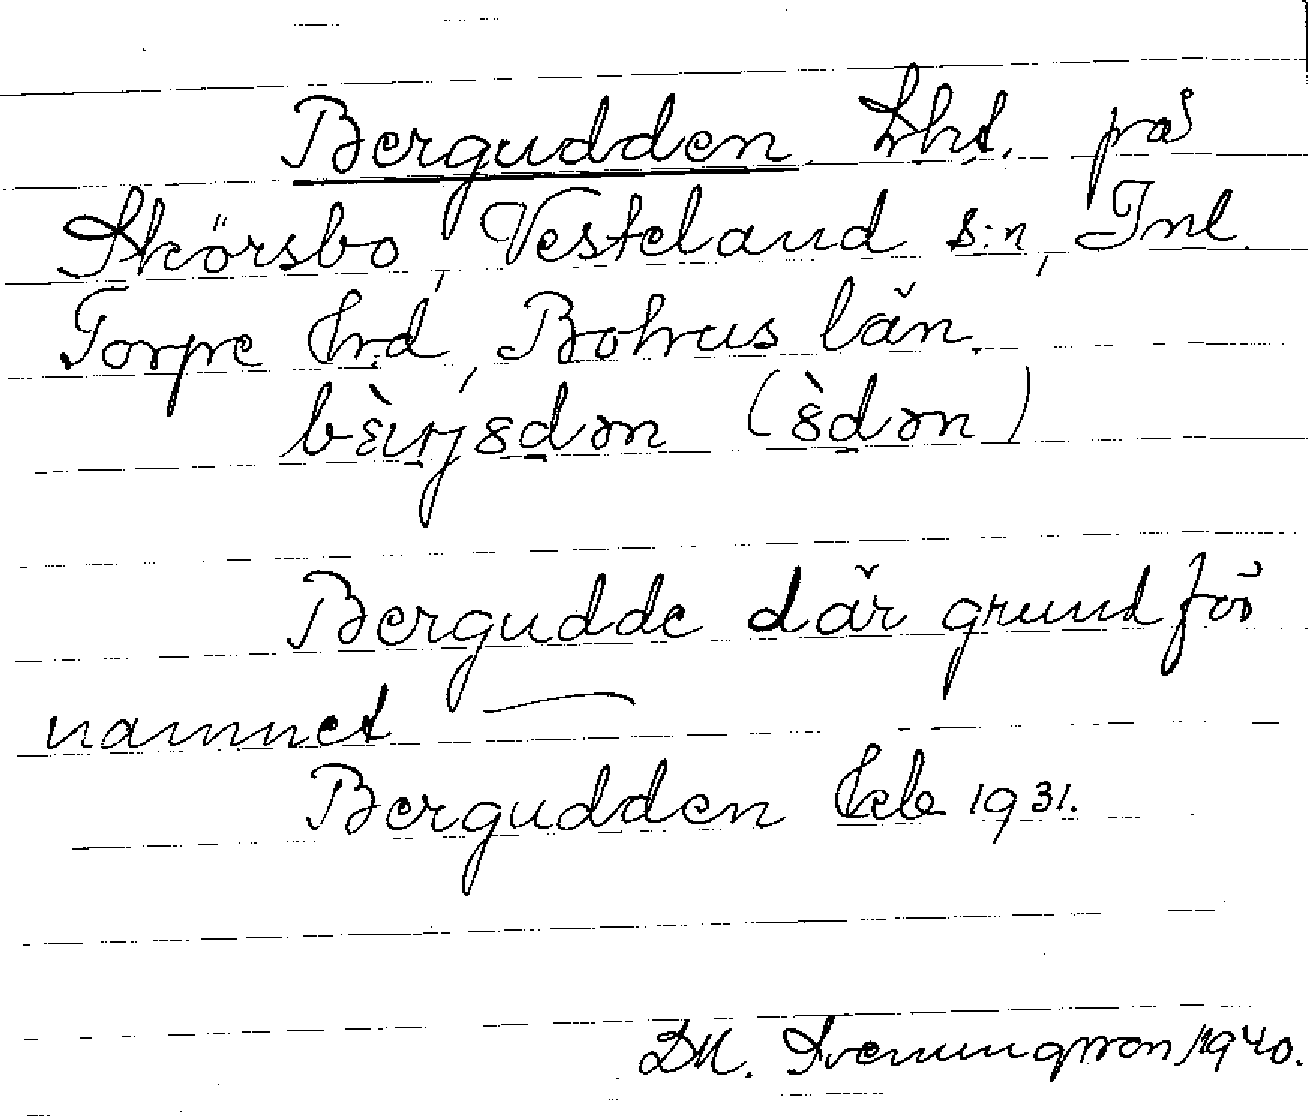 Bergudden, Lht. på
Skörsbo, Vesteland s:n, Inl.
Torpe hrd, Bohus län.
Bergudde där grund för
namnet
Bergudden Ekb 1931.
D.M. Svenungsson 1940.